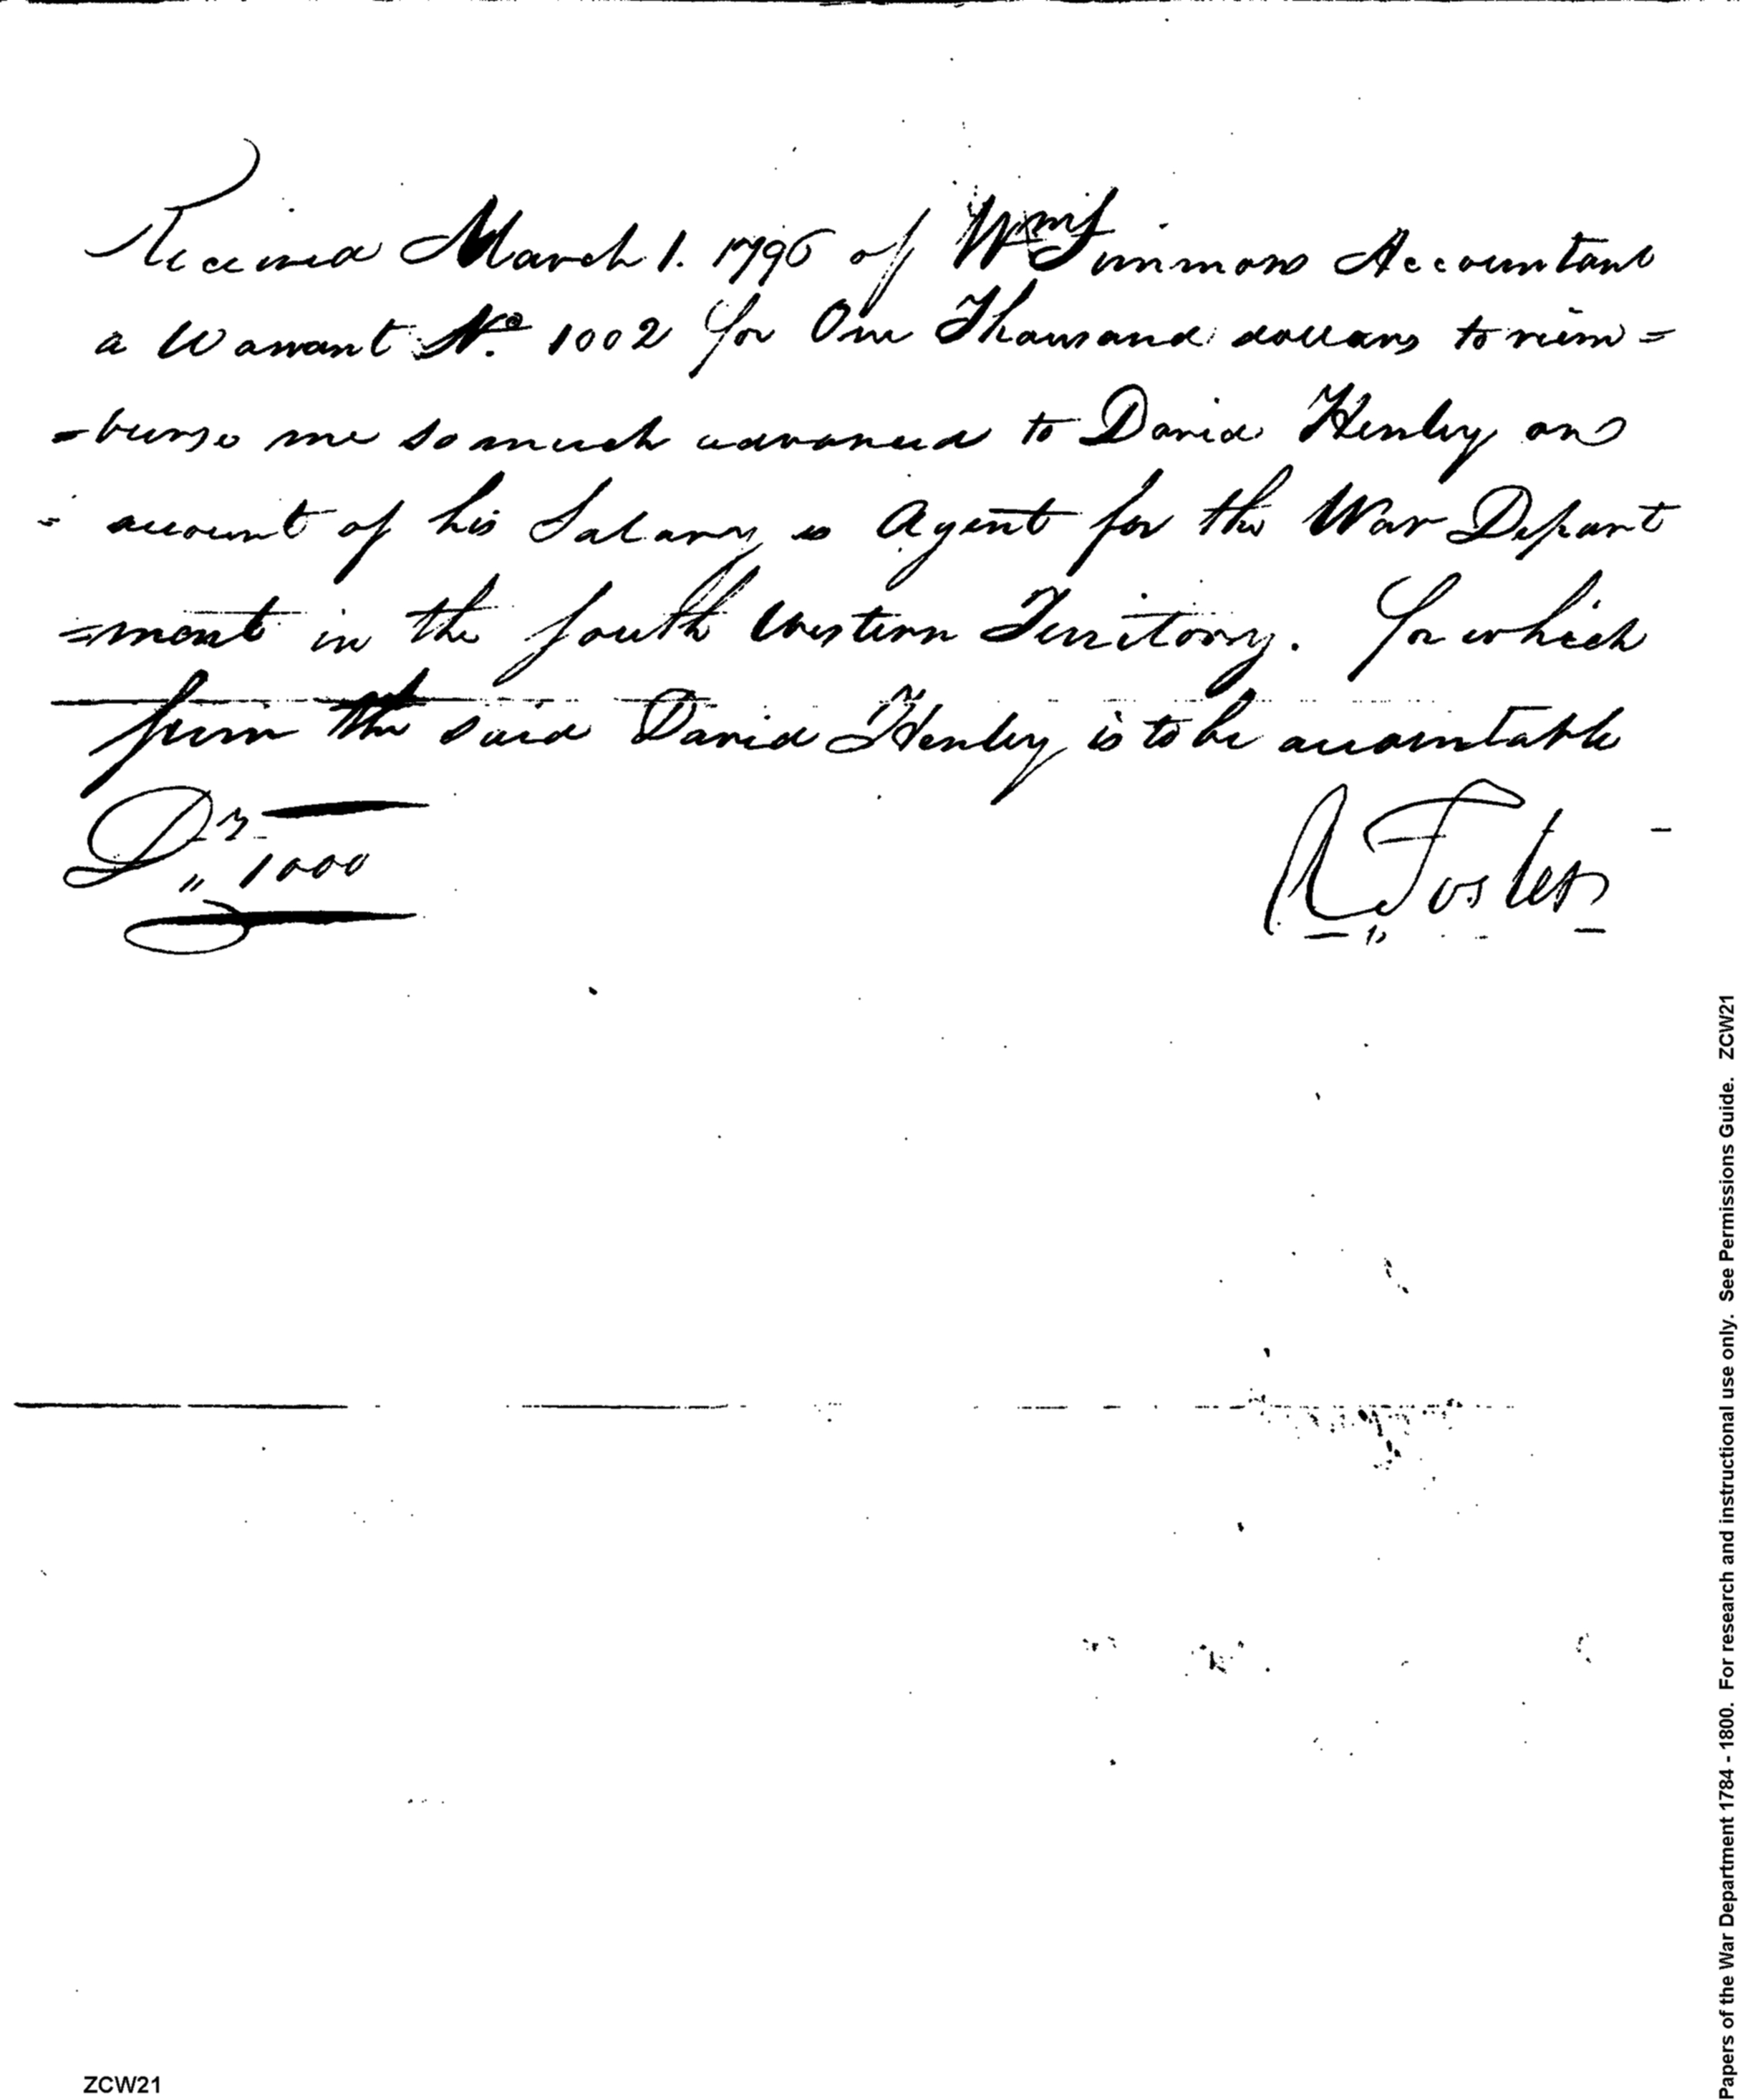 Received March 1. 1796 of Wm Simmons Accountant
a Warrant No. 1002 for One Thousand dollars to reim=
=burse me so much advanced to David Henley on
= account of his Salary as Agent for the War Depart
=ment in the South Western Territory. For which
sum the said David Henley is to be accountable
Drs
" 1000
A Foster
Papers of the War Department 1784 - 1800. For research and instructional use only. See Permissions Guide. ZCW21
ZCW21